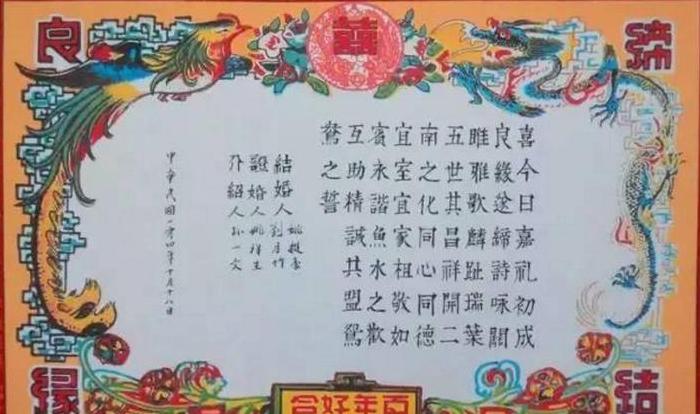 囍
締結
良緣
喜今日嘉礼初成
良緣遂締詩咏關
雎雅歌麟趾瑞葉
五世其昌祥開二
南之化同心同德
宜室宜家相敬如
賓永諧魚水之歡
互助精誠共盟鴛
鴦之誓
結婚人
證婚人
介紹人 孫一文
中華民國一零四年十月十八日
百年好合